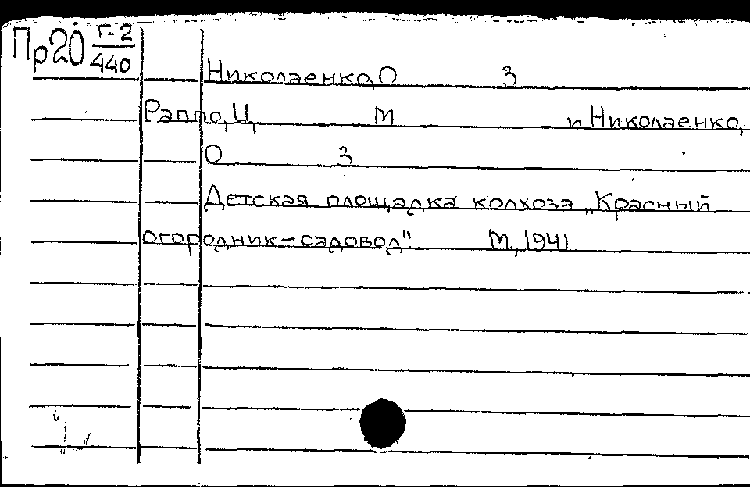 Пр20 Г-2
440
Николаенко, О З
Раппо, Ц М и Николаенко,
О З
Детская площадка колхоза „Красный
огородник-садовод" М, 1941